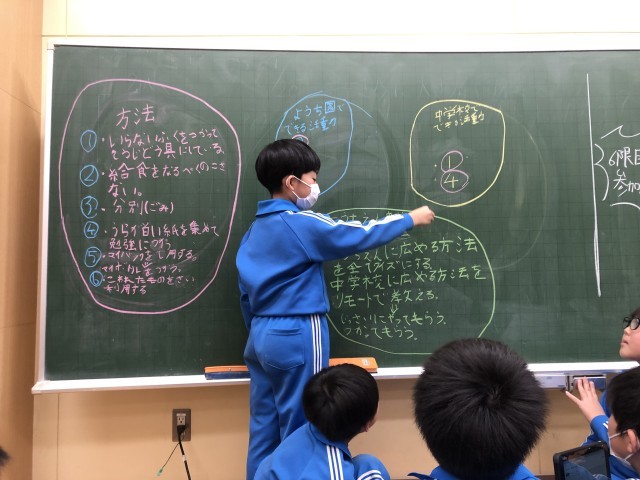 方法
①・いらないふくをつかって
そうじどう具にしている。
②・給食をなるべくのこさ
ない。
③・分別(ごみ)
④・うらが白い紙を集めて
勉強につかう
⑤・マイバックをしようする。
⑥
ようち園で
できる活動
中学校で
できる活動
・①
・④
に広める方法
をクイズにする。
中学校に広める方法を
リモートで考える。
じっさいにやってもらう。
つかってもらう。
6限目
参加